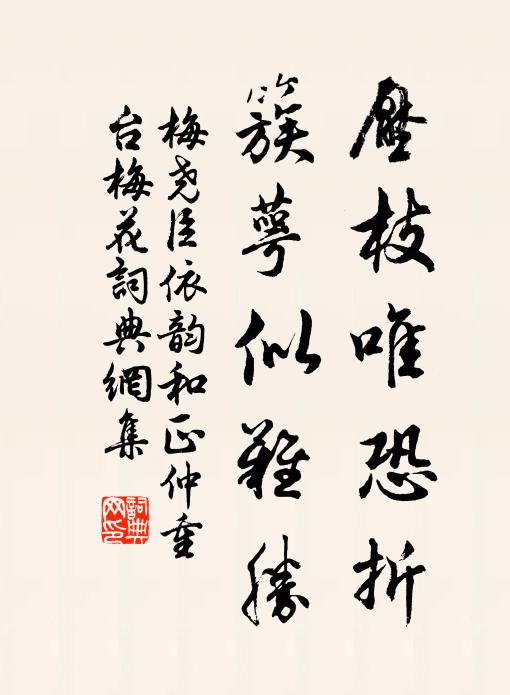 壓枝唯恐折
簇萼似難勝
梅尧臣依韵和正仲重
台梅花詞典網集
詞典
网印